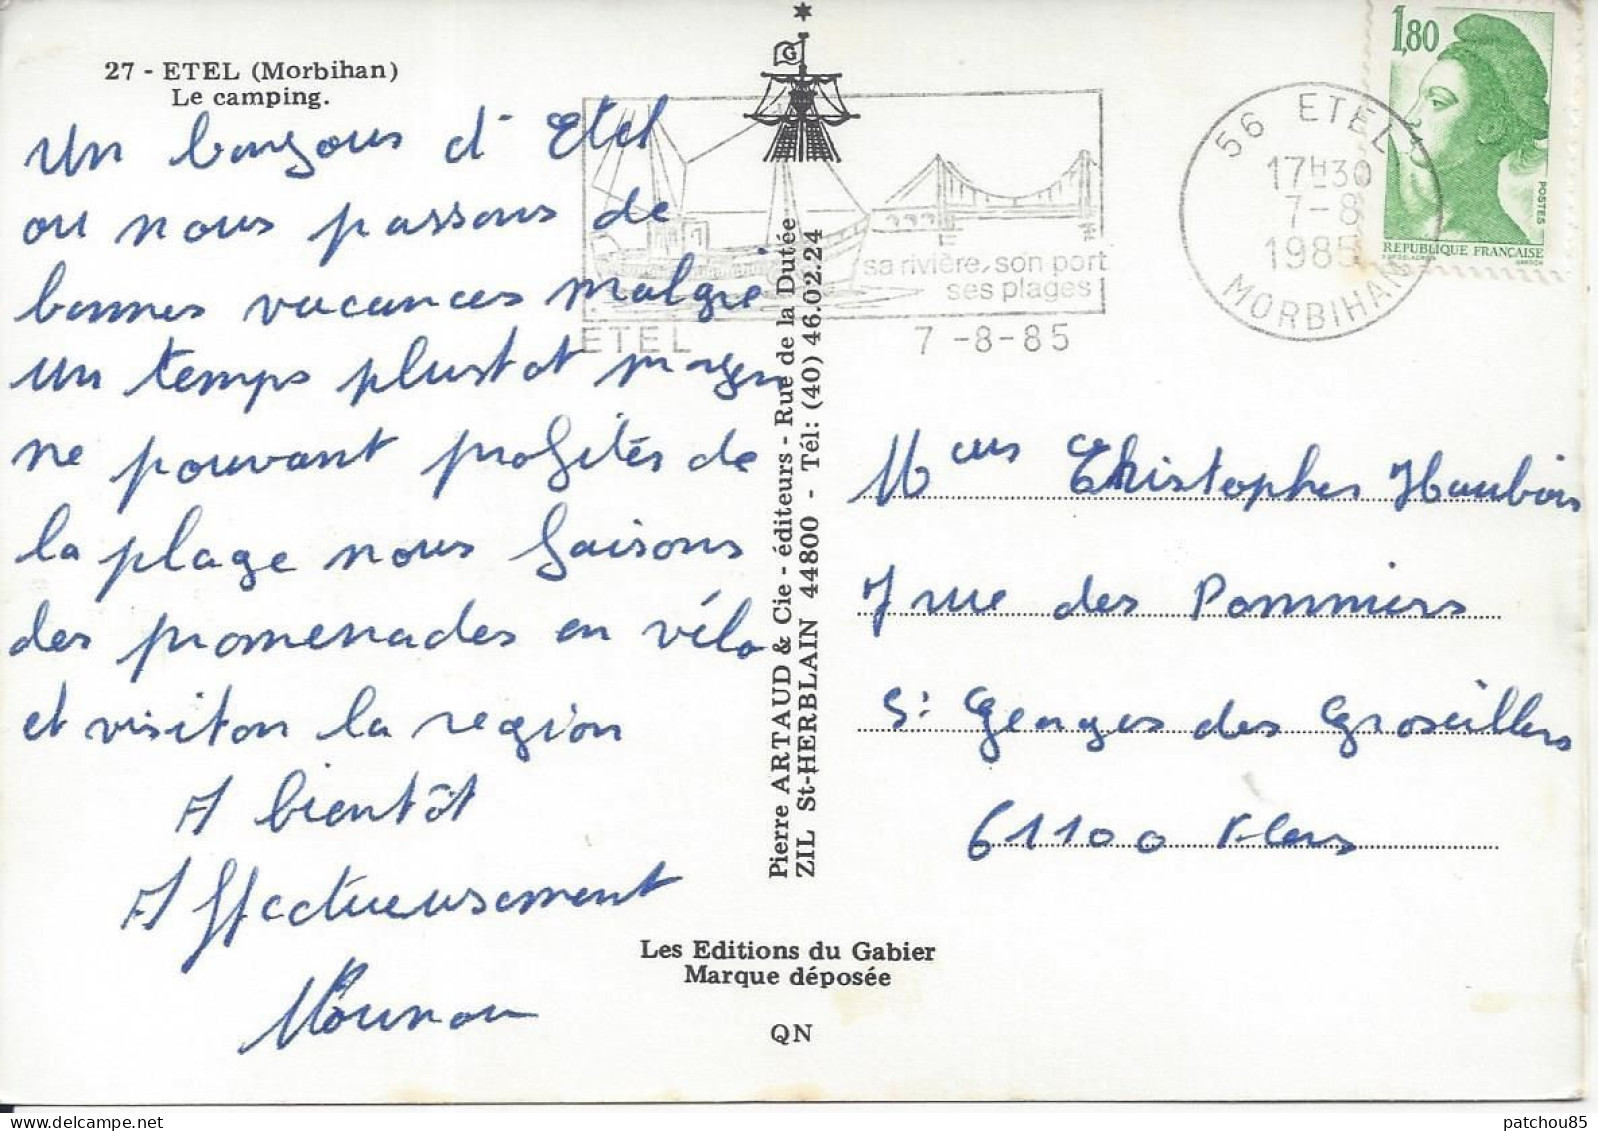 27 - ETEL (Morbihan)
Le camping.
Un bonjour d'Etel
ou nous passons de
bonnes vacances malgré
un temps plustot moyen
ne pouvant profités de
la plage nous faisons
des promenades en vélo
et visiton la region
A bientôt
Affectueusement
G
sa rivière, son port
ses plages
ETEL
7 -8-85
56 ETEL
17H30
7-8
1985
MORBIHAN
1,80
POSTES
REPUBLIQUE FRANÇAISE
Pierre ARTAUD & Cie - éditeurs - Rue de la Dutée
ZIL St-HERBLAIN 44800 - Tél: (40) 46.02.24
Christophe
7 rue des Pommiers
St Georges des Groseillers
61100 Flers
Les Editions du Gabier
Marque déposée
QN
patchou85